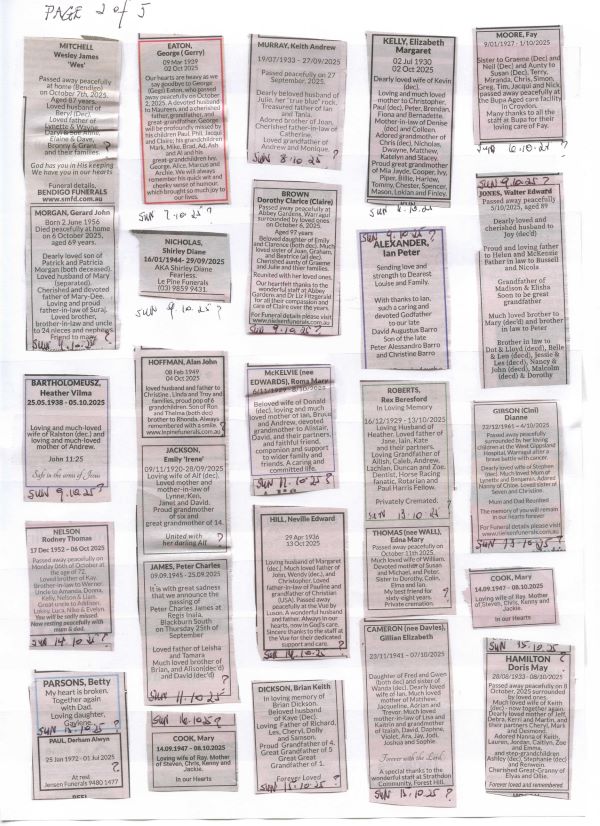 PAGE 2 of 5
MITCHELL
Wesley James
'Wes'
Passed away peacefully
at home (Bendigo)
on October 7th, 2025.
Aged 87 years.
Loved husband of
Beryl (Dec).
Loved father of
Lynette & Wayne,
Elaine & Dave,
Bronny & Grant
and their families.
God has you in His keeping
We have you in our hearts
Funeral details,
BENDIGO FUNERALS
www.smfd.com.au
MORGAN, Gerard John
Born 2 June 1956
Died peacefully at home
on 6 October 2025,
aged 69 years.
Dearly loved son of
Patrick and Patricia
Morgan (both deceased).
Loved husband of Mary
(separated).
Cherished and devoted
father of Mary-Dee.
Loving and proud
father-in-law of Suraj.
Loved brother,
brother-in-law and uncle
to 24 nieces and nephews.
Friend to many.
SUN 9.10.25 ?
BARTHOLOMEUSZ,
Heather Vilma
25.05.1938 - 05.10.2025
Loving and much-loved
wife of Ralston (dec.) and
loving and much-loved
mother of Andrew.
John 11:25
Safe in the arms of Jesus
SUN 9.10.25 ?
NELSON
Rodney Thomas
17 Dec 1952 – 06 Oct 2025
Passed away peacefully on
Monday 06th of October
at the age of 72.
Loved brother of Kay.
Brother-in-law to Werner.
Uncle to Amanda, Donna,
Kelly, Nelson & Liam.
You will be sadly missed
Now resting peacefully with
mum & dad.
SUN 14.10.25 ?
PARSONS, Betty
My heart is broken.
Together again
with Dad.
Loving daughter,
Gaylene.
SUN 15.10.25 ?
PAUL, Derham Alwyn
25 Jan 1972 - 01 Jul 2025
?
At rest
Jensen Funerals 9480 1477
EATON,
George ( Gerry)
09 Mar 1939
02 Oct 2025
Our hearts are heavy as we
say goodbye to George
(Geg) Eaton, who passed
away peacefully on October
2, 2025. A devoted husband
to Maureen, and a cherished
father, grandfather, and
great-grandfather. George
will be profoundly missed by
his children Paul, Phil, Jacqui
and Claire; his grandchildren
Mark, Mike, Brad, Ad, Ash
and Al and his
great-grandchildren Ivy,
George, Alice, Marcus and
Archie. We will always
remember his quick wit and
cheeky sense of humour,
which brought so much joy to
our lives.
SUN 7.10.25 ?
NICHOLAS,
Shirley Diane
16/01/1944- 29/09/2025
AKA Shirley Diane
Fearless.
Le Pine Funerals
(03) 9859 9431
SUN 9.10.25 ?
HOFFMAN, Alan John
08 Feb 1949
04 Oct 2025
loved husband and father to
Christine, Linda and Troy and
families, proud pop of 6
grandchildren. Son of Ron
and Thelma (both dec)
brother to Rhonda. Always
remembered with a smile. ?
www.lepinefunerals.com.au
JACKSON,
Emily 'Irene'
09/11/1920-28/09/2025
Loving wife of Alf (dec),
Loved mother and
mother-in-law of
Lynne, Ken,
Janet and David.
Proud grandmother of
six and
great grandmother of 14.
United with
her darling Alf ?
JAMES, Peter Charles
09.09.1945 - 25.09.2025
It is with great sadness
that we announce the
passing of
Peter Charles James at
Regis Inala,
Blackburn South
on Thursday 25th of
September
Loved father of Leisha
and Tamara
Much loved brother of
Brian, and Alison(dec'd)
and David (dec'd)
SUN 11.10.25 ?
16.10.25 ?
COOK, Mary
14.09.1947 - 08.10.2025
Loving wife of Ray. Mother
of Steven, Chris, Kenny and
Jackie.
In our Hearts
MURRAY, Keith Andrew
19/07/1933 - 27/09/2025
Passed peacefully on 27
September, 2025.
Dearly beloved husband of
Julie, her "true blue" rock.
Treasured father of Ian
and Tania.
Adored brother of Joan,
Cherished father-in-law of
Catherine
Loved grandfather of
Andrew and Monique.
SUN 8.10.25 ?
BROWN
Dorothy Clarice (Claire)
Passed away peacefully at
Abbey Gardens, Warragul
surrounded by loved ones
on October 6, 2025.
Aged 97 years
Beloved daughter of Emily
and Clarence (both dec). Much
loved sister of Joan, Graham,
and Beatrice (all dec).
Cherished aunty of Graeme
and Julie and their families.
Reunited with her loved ones.
Our heartfelt thanks to the
wonderful staff of Abbey
Gardens and Dr Liz Fitzgerald
for all their compassion and
care of Claire over the years.
For Funeral details please visit
www.nielsenfunerals.com.au
SUN 9.10.25 ?
McKELVIE (nee
EDWARDS), Roma Mary
6/11/1929 - 8/10/2025
Beloved wife of Donald
(dec), loving and much
loved mother of Ian, Bruce
and Andrew, devoted
grandmother to Alistair,
David, and their partners,
and faithful friend,
companion and support
to wider family and
friends. A caring and
committed life.
SUN 11.10.25 ?
HILL, Neville Edward
29 Apr 1936
13 Oct 2025
Loving husband of Margaret
(dec). Much loved father of
John, Wendy (dec), and
Christopher. Loved
father-in-law of Pauline and
grandfather of Christian
(USA). Passed away
peacefully at the Vue by
Luson. A wonderful husband
and father. Always in our
hearts, now in God's care.
Sincere thanks to the staff at
the Vue for their dedicated
support and care. ?
SUN 14.10.25
DICKSON, Brian Keith
In loving memory of
Brian Dickson.
Beloved husband
of Kaye (Dec).
Loving Father of Richard,
Lex, Cheryl, Dolly
and Samson.
Proud Grandfather of 4.
Great Grandfather of 5
Great Great
Grandfather of 1.
Forever Loved
SUN 15.10.25 ?
KELLY, Elizabeth
Margaret
02 Jul 1930
02 Oct 2025
Dearly loved wife of Kevin
(dec).
Loving and much loved
mother to Christopher,
Paul (dec), Peter, Brendan,
Fiona and Bernadette.
Mother-in-law of Denise
(dec) and Colleen.
Adored grandmother of
Chris (dec), Nicholas,
Dwayne, Matthew,
Katelyn and Stacey.
Proud great grandmother
of Mia Jayde, Cooper, Ivy,
Piper, Billie, Harlow,
Tommy, Chester, Spencer,
Mason, Loklan and Finley.
SUN 8.10.25 ?
SUN 9.10.25 ?
ALEXANDER,
Ian Peter
Sending love and
strength to Dearest
Louise and Family.
With thanks to Ian,
such a caring and
devoted Godfather
to our late
David Augustus Barro
Son of the late
Peter Alessandro Barro
and Christine Barro
ROBERTS,
Rex Beresford
In Loving Memory
16/12/1929 - 13/10/2025
Loving Husband of
Heather. Loved father of
Jane, Iain, Kate
and their partners.
Loving Grandfather of
Ailish, Caleb, Andrew,
Lachlan, Duncan and Zoe.
Dentist, Horse Racing
fanatic, Rotarian and
Paul Harris Fellow.
Privately Cremated.
SUN 15.10.25 ?
THOMAS (nee WALL),
Edna Mary
Passed away peacefully on
October 11th 2025.
Much loved wife of William.
Devoted mother of Susan
and Michael, and Peter.
Sister to Dorothy, Colin,
Elma and Ian.
My best friend for
sixty eight years.
Private cremation.
CAMERON (nee Davies),
Gillian Elizabeth
23/11/1941 - 07/10/2025
Daughter of Fred and Gwen
(both dec) and sister of
Wanda (dec). Dearly loved wife
of Ian. Much loved mother of
Matthew,
Jacqueline, Adrian and
Trevor. Much loved
mother-in-law of Lisa and
Kaitrin and grandmother
of Izaiah, David, Daphne,
Violet, Ara, Jay, Jodi,
Joshua and Sophie.
Forever with the Lord
A special thanks to the
wonderful staff at Strathdon
Community, Forest Hill.
SUN 15.10.25 ?
MOORE, Fay
9/01/1927 - 1/10/2025
Sister to Graeme (Dec) and
Neil (Dec) and Aunty to
Susan (Dec), Terry,
Miranda, Chris, Simon,
Greg, Tim, Jacqui and Nick,
passed away peacefully at
the Bupa Aged care facility
in Croydon.
Many thanks to all the
staff at Bupa for their
loving care of Fay.
SUN 6.10.25 ?
SUN 9.10.25 ?
JONES, Walter Edward
Passed away peacefully
5/10/2025, aged 89
Dearly loved and
cherished husband to
Joy (dec'd)
Proud and loving father
to Helen and McKenzie
Father in law to Russell
and Nicola
Grandfather of
Madison & Elisha
Soon to be great
grandfather
Much loved brother to
Mary (decd) and brother
in law to Peter
Brother in law to
Dot & Lloyd (decd), Belle
& Len (decd), Jessie &
Les (decd), Nancy &
John (decd), Malcolm
(decd) & Dorothy
GIBSON (Cini)
Dianne
22/12/1961 – 4/10/2025
Passed away peacefully
surrounded by her loving
children at the West Gippsland
Hospital, Warragul after a
brave battle with cancer.
Dearly loved wife of Stephen
(dec). Much loved Mum of
Lynette and Benjamin. Adored
Nanny of Chloe. Loved sister of
Seven and Christine.
Mum and Dad Reunited
The memory of you will remain
in our hearts forever
For Funeral details please visit
www.nielsenfunerals.com.au
SUN 13.10.25 ?
COOK, Mary
14.09.1947 - 08.10.2025
Loving wife of Ray. Mother
of Steven, Chris, Kenny and
Jackie.
In our Hearts
SUN 15.10.25 ?
HAMILTON ?
Doris May
28/08/1933 – 08/10/2025
Passed away peacefully on 8
October, 2025 surrounded
by loved ones
Much loved wife of Keith
(dec) - now together again.
Dearly loved mother of
Debra, Kerri and Martin, and
their partners Cheryl, Mark
and Desmond.
Adored Nanna of Keith,
Lauren, Jordan, Caitlyn, Zoe
and Emma,
and step-grandchildren
Ashley (dec), Stephanie (dec)
and Renwein.
Cherished Great-Granny of
Elyas and Ollie.
Forever loved and remembered